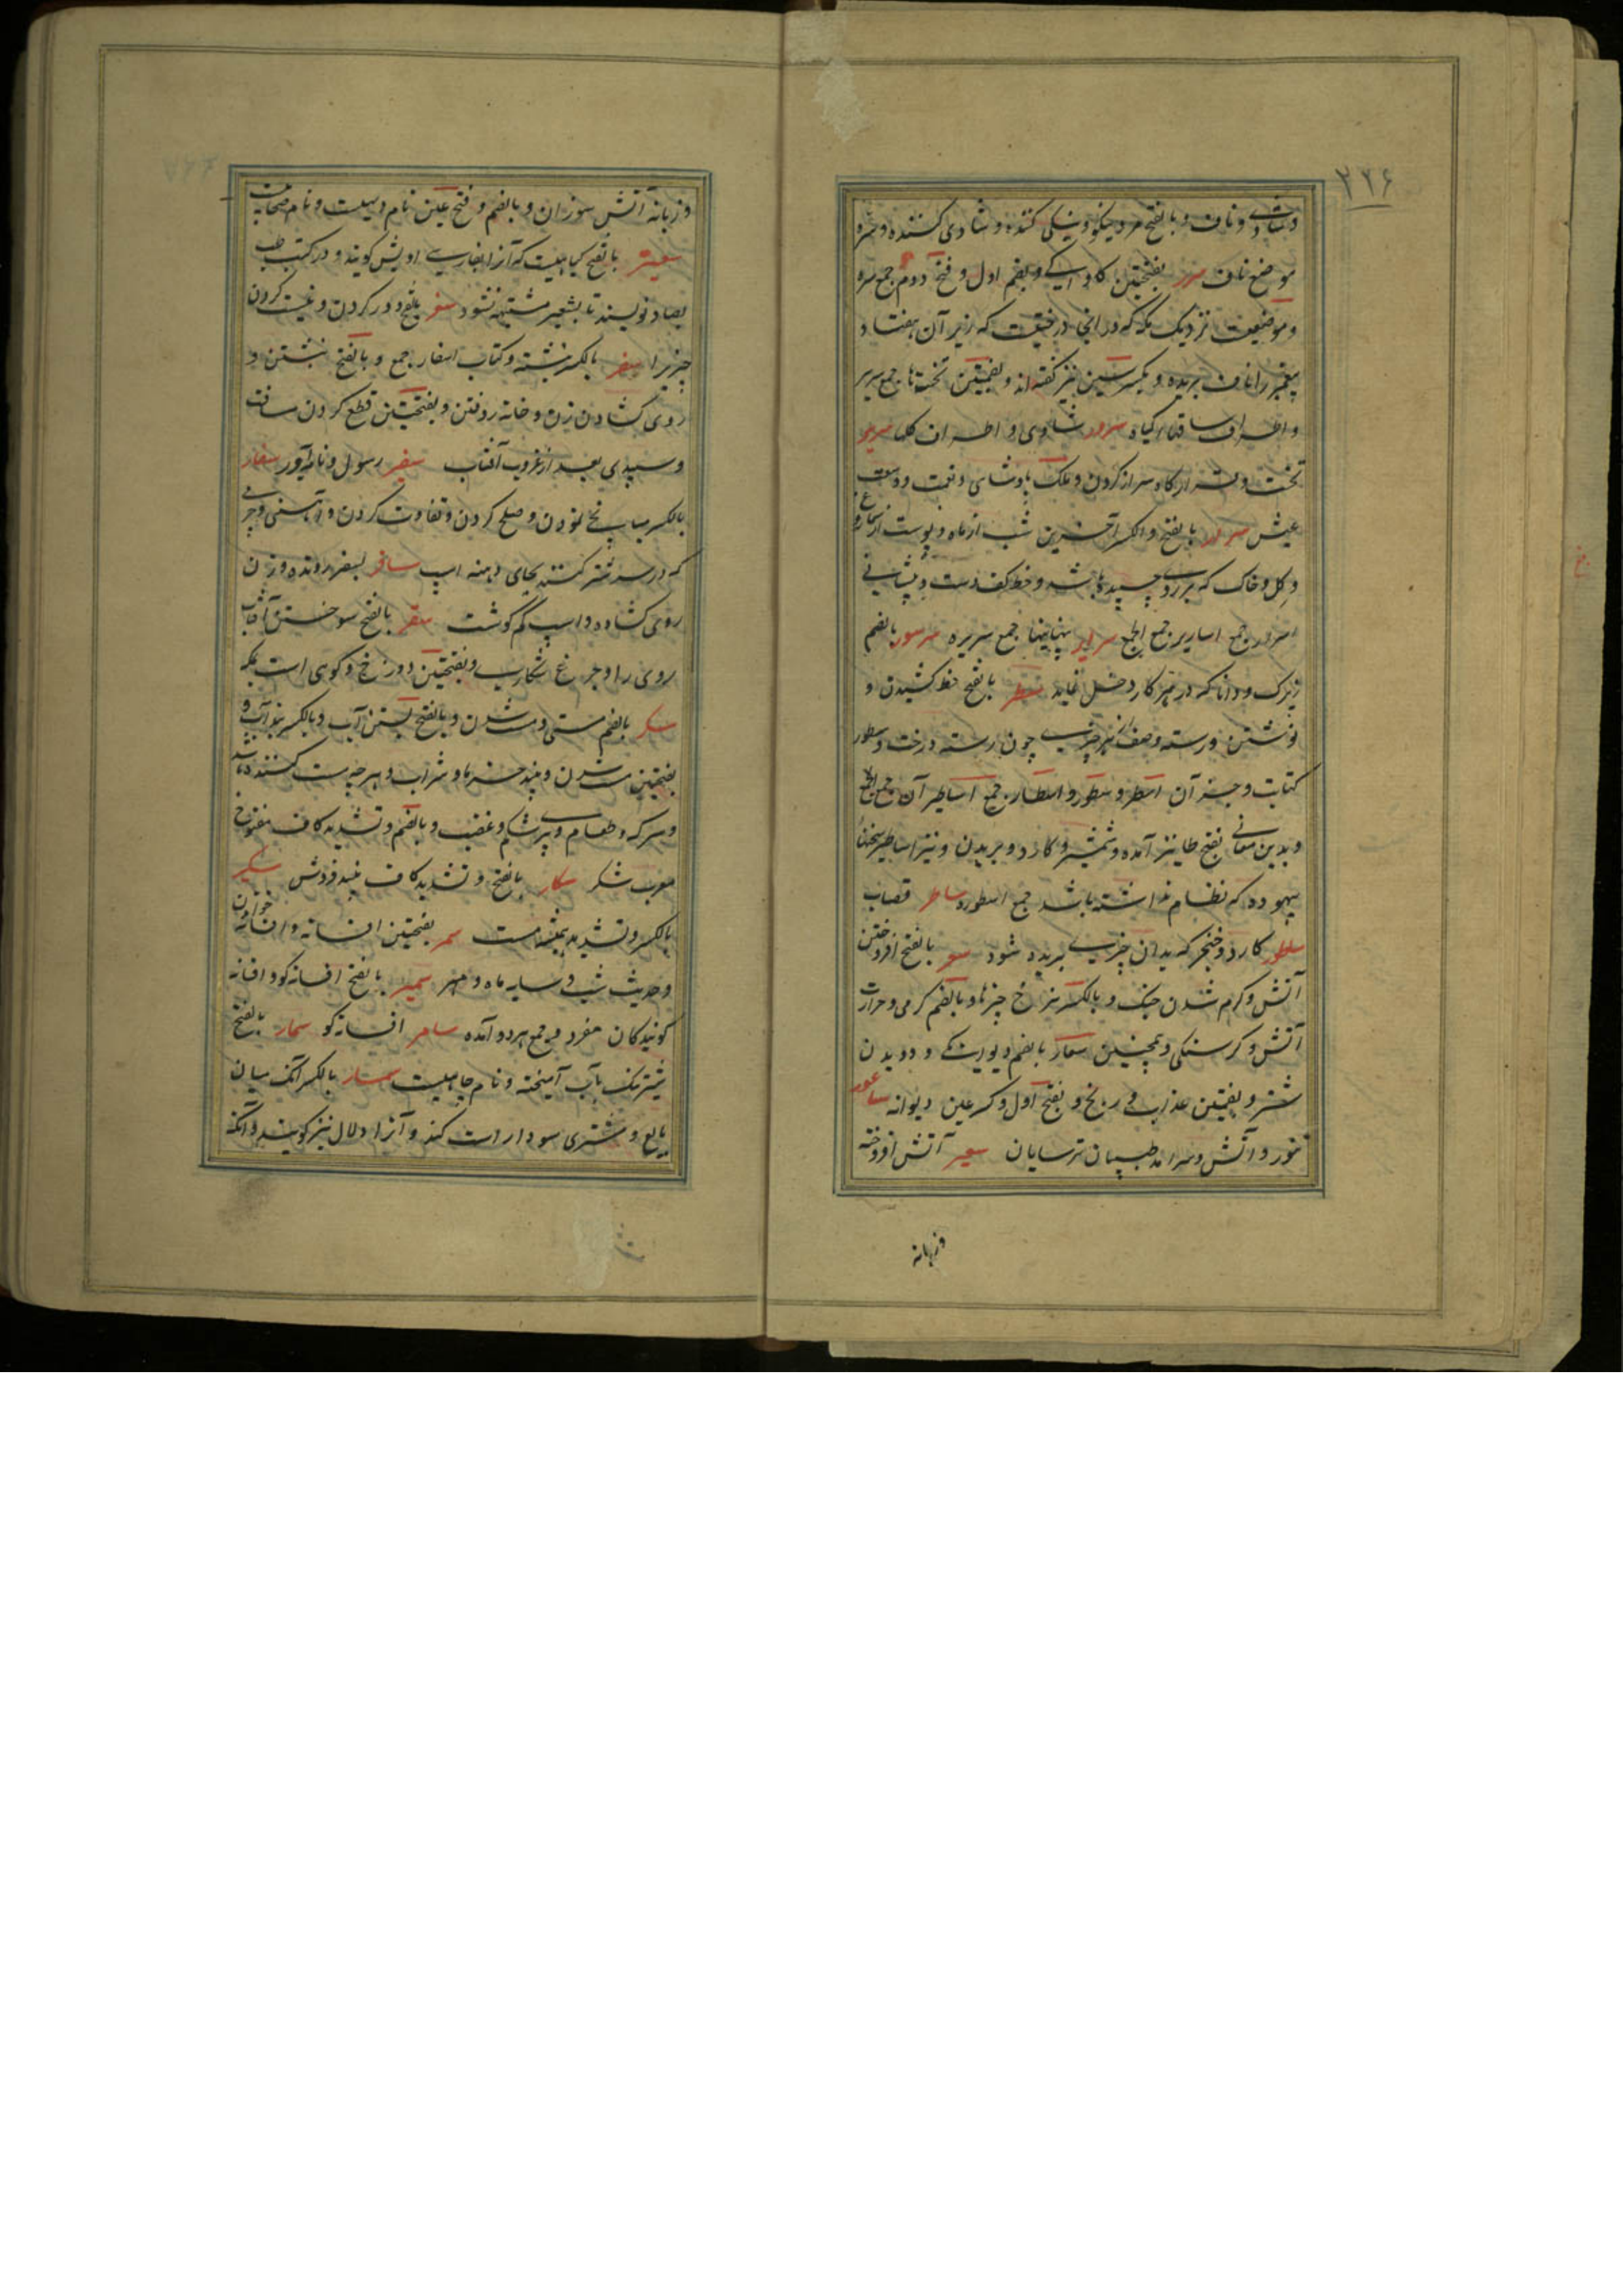 ۲۲۶
وشادی و ناف و بالفتح مرد نیکو و نیکی کننده و شادی کننده و سره
موضع ناف سرر بفتحتین کاواکی و بضم اول و فتح دوم جمع سره
و موضعیست نزدیک مکه که در آنجا درختیست که زیر آن هفتاد
پیغمبر را ناف بریده و بکسر سین نیز گفته اند و بضمتین تختها جمع سریر
و اطراف ساقهاء گیاه سرور شادی و اطراف گلها سریر
تخت و قرارگاه سر از گردن و ملک و پادشاهی و نعمت و وسعت
عیش سرار بالفتح والکسر آخرین شب از ماه و پوست از سماروغ
و گل و خاک که بر روی چسپیده باشد و خط کف دست و پیشانی
اسرار جمع اساریر جمع الجمع سرایر پنهانیها جمع سریره سرسور بالضم
زیرک و دانا که در هر کار دخل نماید سطر بالفتح خط کشیدن و
نوشتن و رسته و صف از هر چیزی چون رسته درخت و سطور
کتابت و جز آن اسطر و سطور و اسطار جمع اساطیر آن جمع الجمع
و بدین معانی بفتح طا نیز آمده و شمشیر و کارد و بریدن و نیز اساطیر سخنهاء
بیهوده که نظام نداشته باشد جمع اسطوره ساطر قصاب
ساطور کارد و خنجر که بدان چیزی بریده شود سعر بالفتح افروختن
آتش و گرم شدن جنگ و بالکسر نرخ چیزها و بالضم گرمی و حرارت
آتش و گرسنگی و همچنین سعار بالضم و دیوانگی و دویدن
شتر و بضمتین عذاب و رنج و بفتح اول و کسر عین دیوانه ساعور
تنور و آتش و سرآمد طبیبان ترسایان سعیر آتش افروخته
وزبانه
وزبانه آتش سوزان و بالضم و فتح عین نام بتیست و نام صحابیست
سعتر بالفتح گیاهیست که آنرا بفارسی اویش گویند و در کتب طب
بصاد نویسند تا بشعیر مشتبه نشود سفر بالفتح دور کردن و نیست کردن
چیزیرا سفر بالکسر نبشته و کتاب اسفار جمع و بالفتح نبشتن و
روی گشادن زن و خانه روفتن و بفتحتین قطع کردن مسافت
و سپیدی بعد از غروب آفتاب سفیر رسول و نامه آور سفار
بالکسر میانجی نمودن و صلح کردن و تفاوت کردن و آهنی و چرمی
که در سر شتر کنند بجای دهنه اسپ سافر بسفر رونده و زن
روی گشاده و اسپ کم گوشت سقر بالفتح سوختن آفتاب
روی را و چرغ شکاری و بفتحتین دوزخ و کوهی است بمکه
سکر بالضم مستی و مست شدن و بالفتح بستن آب و بالکسر بند آب و
بفتحتین مست شدن و نبیذ خرما و شراب و هر چه مست کننده باشد
و سرکه و طعام و پری شکم و غضب و بالضم و تشدید کاف مفتوح
معرب شکر سکار بالفتح و تشدید کاف نبیذ فروش سکیر
بالکسر و تشدید همیشه مست سمر بفتحتین افسانه و افسانه خواندن
و حدیث شب و سایه ماه و مهر سمیر بالفتح افسانه گو و افسانه
گویندگان مفرد و جمع هر دو آمده سامر افسانه گو سمار بالفتح
شیر تنک بآب آمیخته و نام جاهیست سمسار بالکسر آنکه میان
بایع و مشتری سودا راست کند و آنرا دلال نیز گویند و آنکه